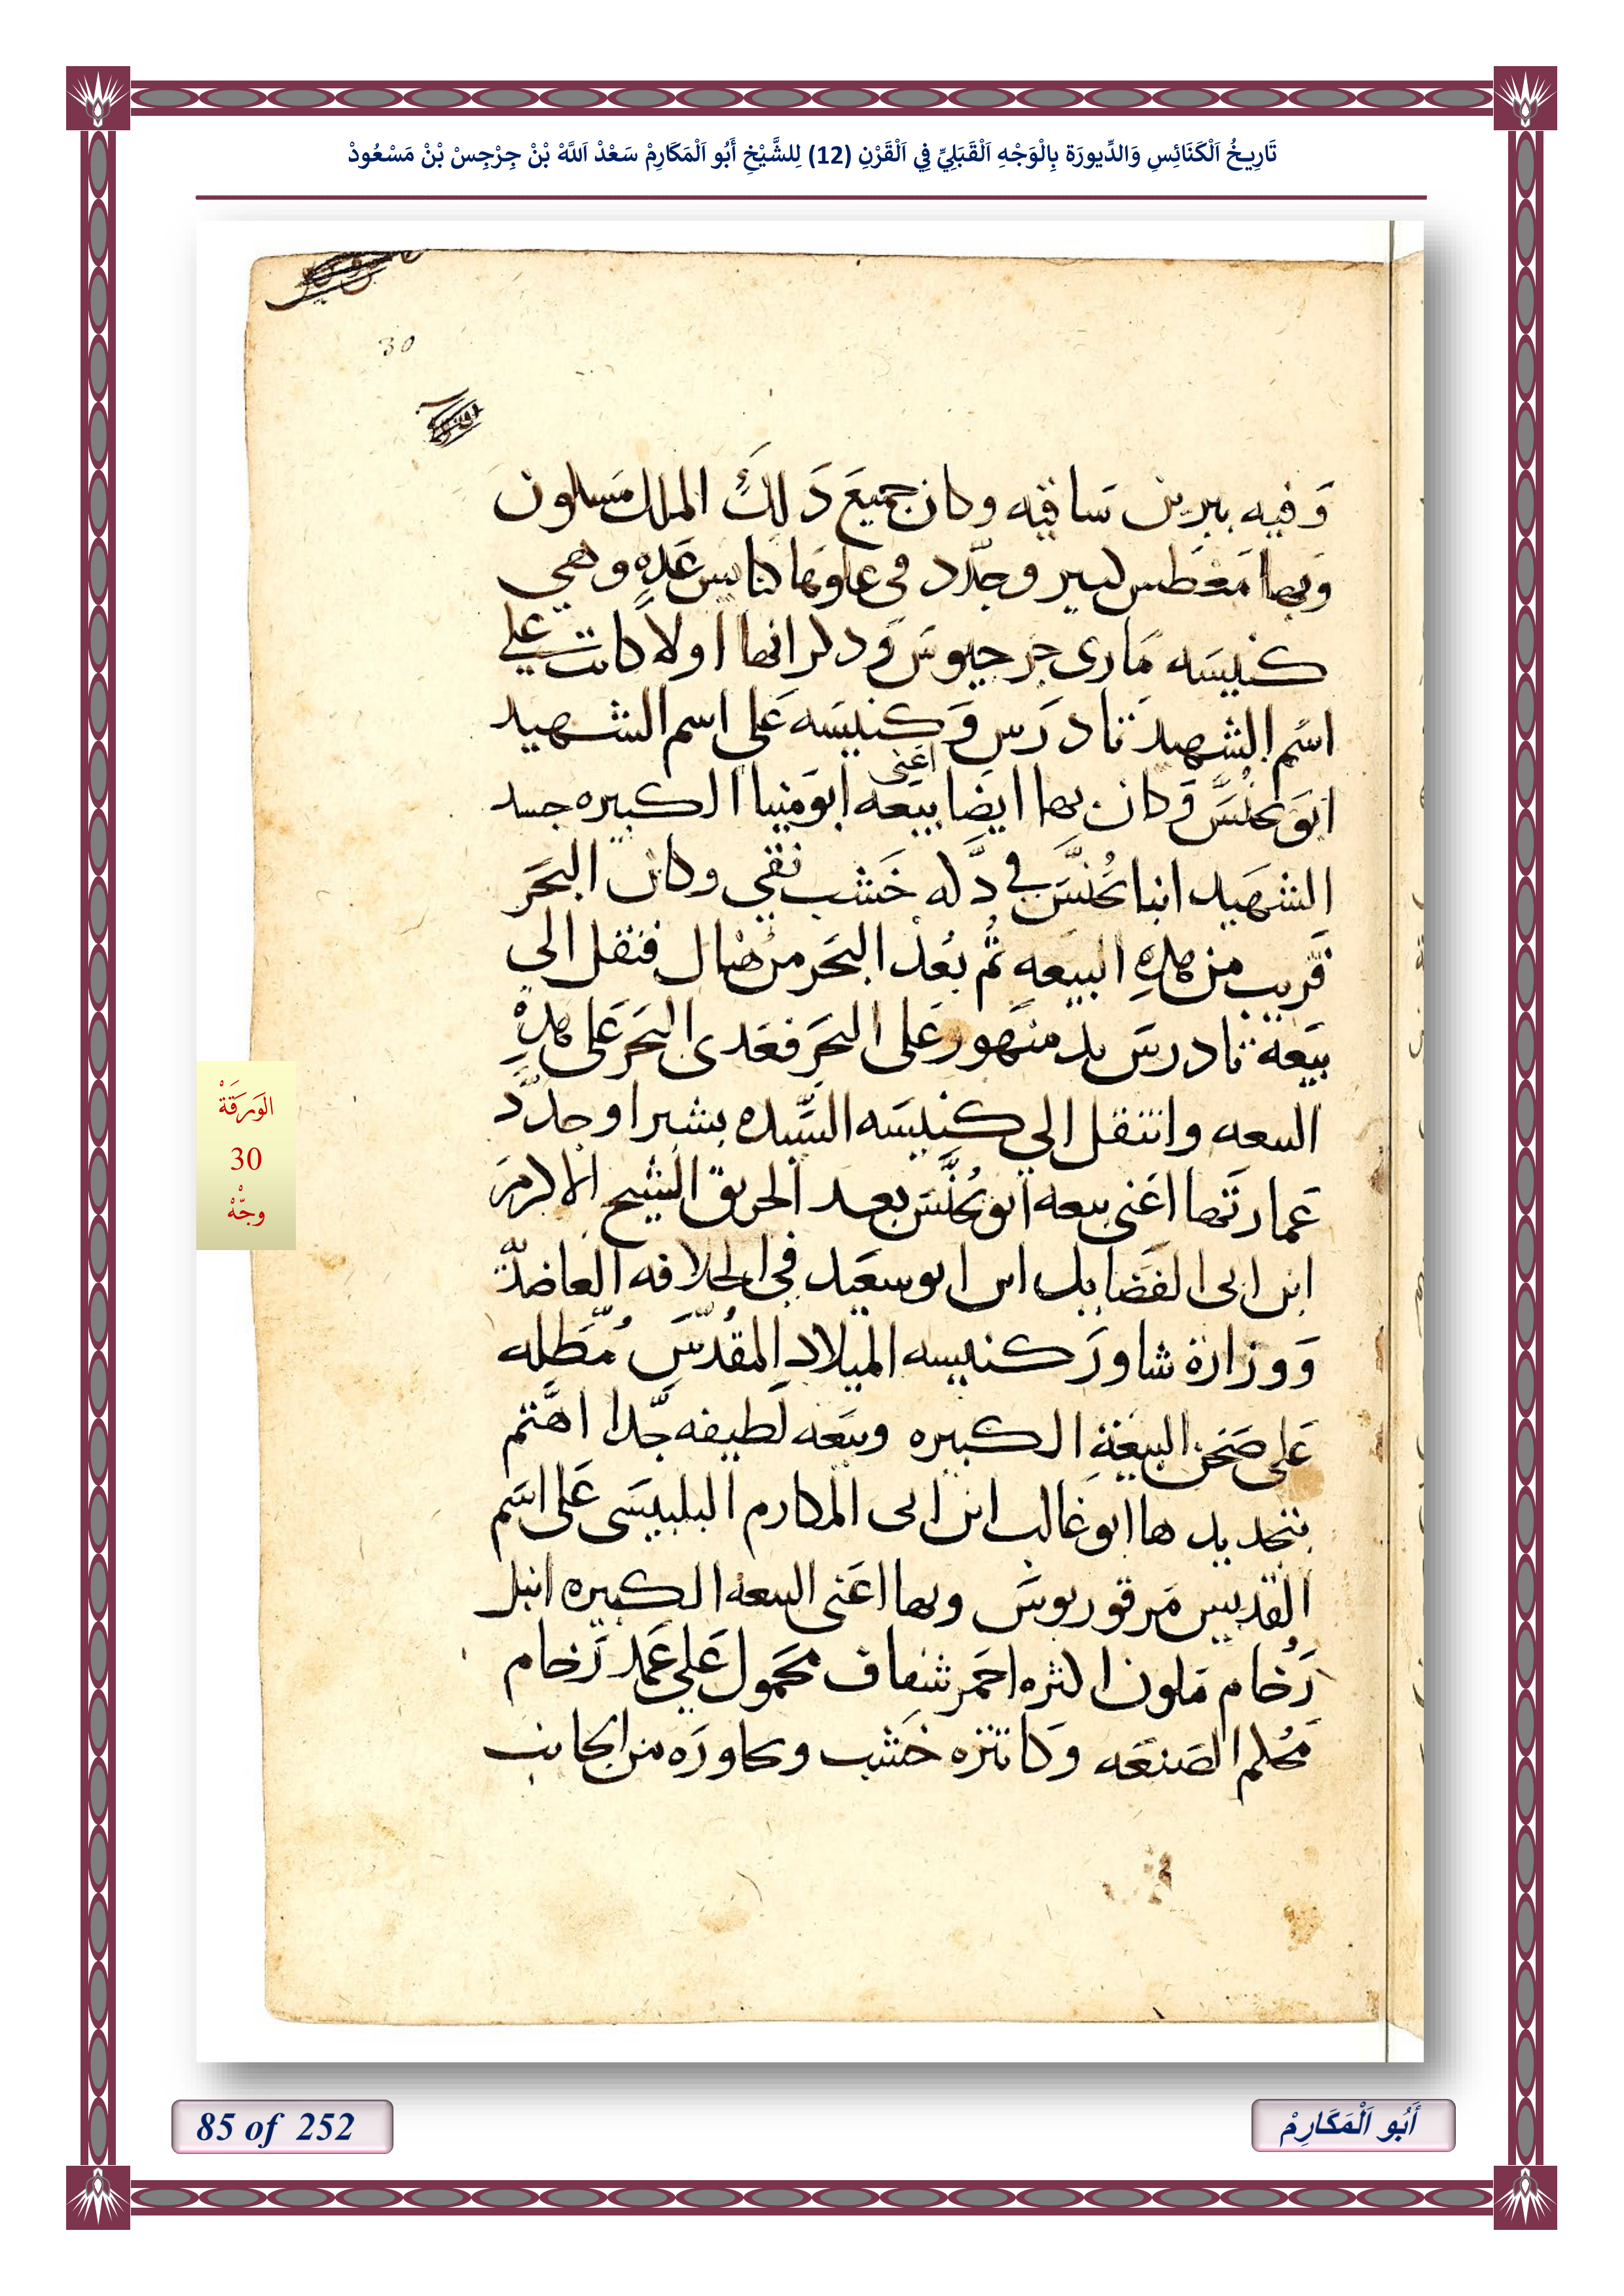 تَارِيخُ اَلْكَنَائِسِ وَالدِّيورَة بِالْوَجْهِ اَلْقَبَلِيِّ فِي اَلْقَرْنِ (12) لِلشَّيْخِ أَبُو اَلْمَكَارِمْ سَعْدْ اَللَّهْ بْنْ جِرْجِسْ بْنْ مَسْعُودْ
30
وَفيه بيرين سَاقيه وكان جميعَ دَلكَ الملك مسلون
وبها مَغطس كبير وجدّد فى علوها كنايس عَده وهي
كنيسَه مَارى جرجيوسَ وَدكر انها اولا كانت علي
اسم الشهيد تادرَس وَكنيسَه عَلى اسم الشهيد
ابَو يحنسَّ وَكان بها ايضا بيعه اعَنى ابو مَنيا الكبيره جسد
الشهَيد انبا يُحنسَّ في دَكه خَشب نقي وكان البحَر
قَريب من هدهِ البيعه ثُم بعُد البحَر من هناك فنقل الي
بيَعة تادرسَ بدمنهَور عَلى البحَر فعَدى البحَر عَلى هدهِ
البيعه وانتقل الي كنيسَه السَّيده بشبرا وجدَّد
عَمارتَها اعَنى بيعه ابو يُحنَّسَ بعد الحريق الشيخ الاكرمَ
ابن ابى الفضَايل ابن ابو سعَيد في الخلافه العاضديَّة
وَوزارة شاورَ كنيسه الميلاد المقُدسَّ مُطَله
عَلى صَحَن البيعَةِ الكبيره وبيَعه لطيفه جَّدا اهَتم
بتجديدها ابو غالب ابن ابى المكارم البلبيسَى عَلى اسَم
القديس مَرقوريوسَّ وبها اعَنى البيعه الكبيره انبل
رَخام مَلون اكثره احمَر شفاف محمَول عَلي عَمد رَخام
محُكم الصَنعَه وَكاتنزه خَشب ومجاورَه من الجانب
الوَرَقَةْ
30
وجّهْ
85 of 252
أَبُو اَلْمَكَارِمْ